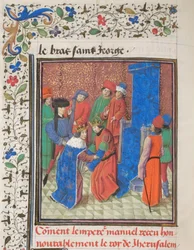 le bras saint george.
Com̃ent lempe? manuel receu hon
nourablement le roy de Iherusalem